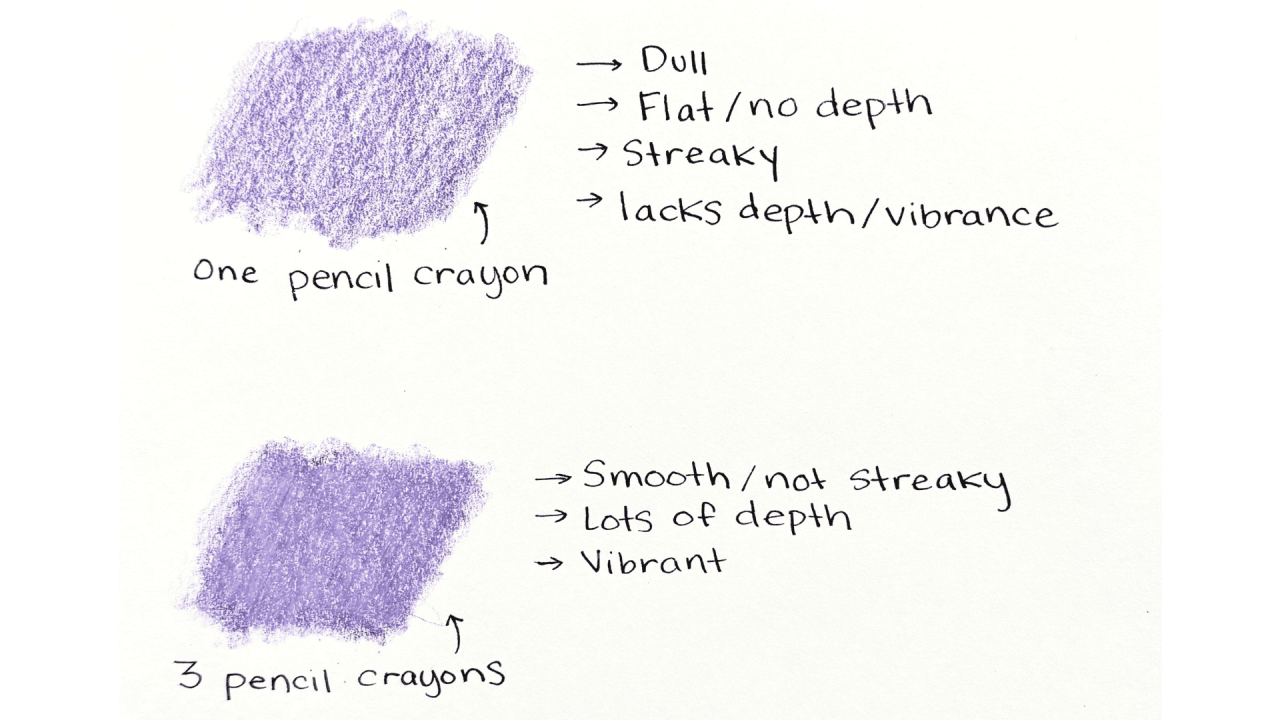 → Dull
→ Flat/no depth
→ Streaky
→ lacks depth/vibrance
One pencil crayon
→ Smooth/not streaky
→ Lots of depth
→ Vibrant
3 pencil crayons